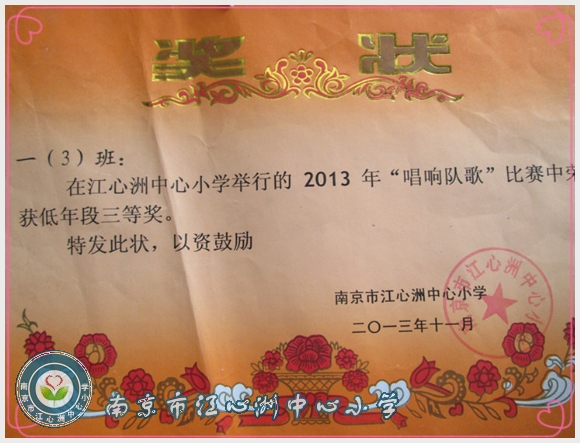 奖状
一（3）班：
在江心洲中心小学举行的 2013 年“唱响队歌”比赛中荣
获低年段三等奖。
特发此状，以资鼓励
南京市江心洲中心小学
二〇一三年十一月
南京市江心洲中心小学
南京市江心洲中心小学
南京市江心洲中心小学